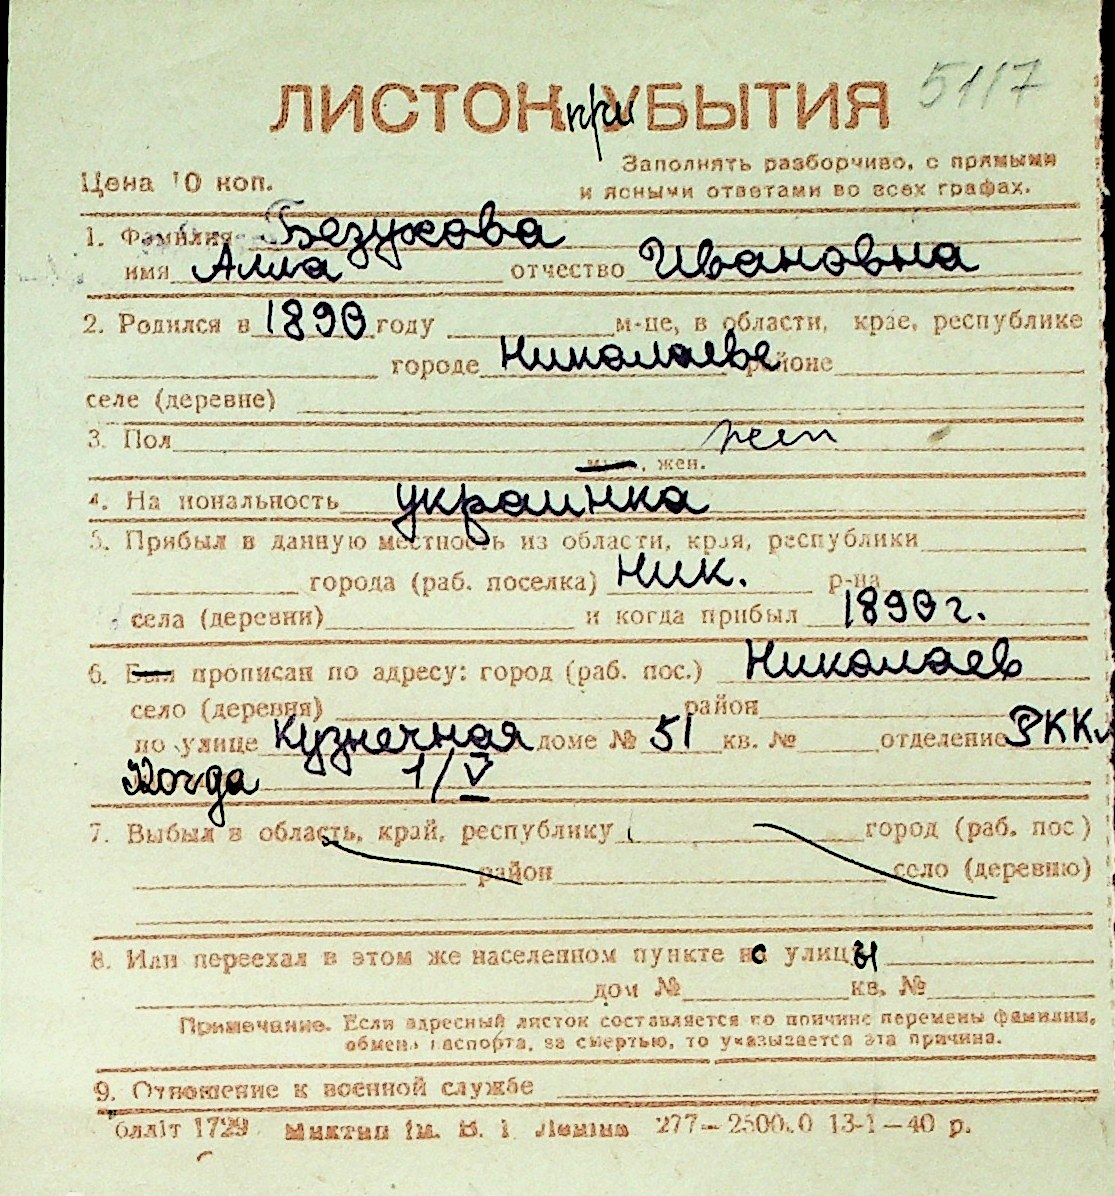 5117
ЛИСТОК при УБЫТИЯ
Заполнять разборчиво, с прямыми
Цена 10 коп.
и ясными ответами во всех графах.
1. Фамилия Безухова
имя Алла отчество Ивановна
2. Родился в 1890 году м-це, в области, крае, республике
городе Николаеве районе
селе (деревне)
3. Пол жен
, жен.
4. На иональность украинка
5. Прибыл в данную местность из области, края, республики
города (раб. поселка) Ник. р-на
села (деревни) и когда прибыл 1890 г.
6. Был прописан по адресу: город (раб. пос.) Николаев
село (деревня) район
по улице Кузнечная доме № 51 кв. № отделение РКК
Когда 1/V
7. Выбыл в область, край, республику город (раб. пос)
район село (деревню)
8. Или переехал в этом же населенном пункте с улицы
дом № кв. №
Примечание. Если адресный листок составляется по причине перемены фамилии,
обмена паспорта, за смертью, то указывается эта причина.
9. Отношение к военной службе
блліт 1729 ім. В. І. Леніна 277—2500.0 13-1—40 р.